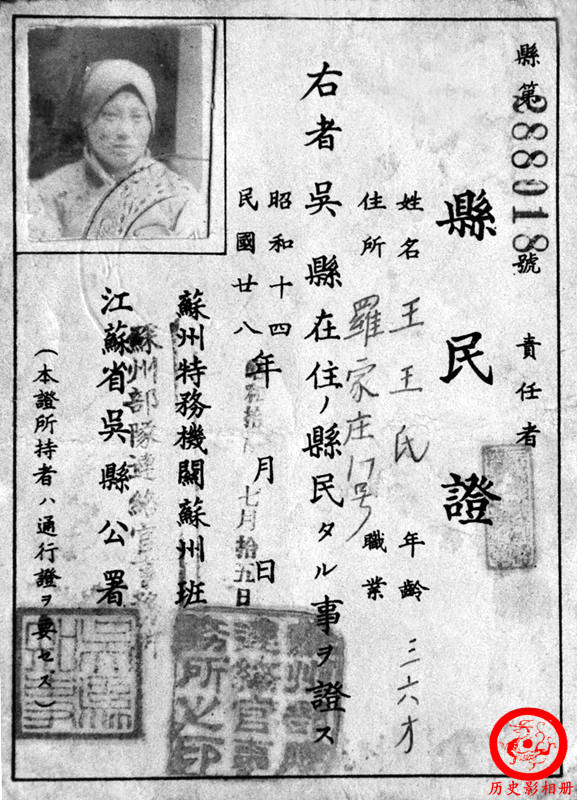 縣第288018號 責任者
縣民證
姓名 王王氏 年齡 三六才
住所 羅家庄17号 職業
右者吳縣在住ノ縣民タル事ヲ證ス
昭和十四
民國廿八
年 月 日
七月拾五日
蘇州特務機關蘇州班
蘇州部隊連絡官事務所
江蘇省吳縣公署
(本證所持者ハ通行證ヲ要セス)
連絡官事
務所之印
历史影相册